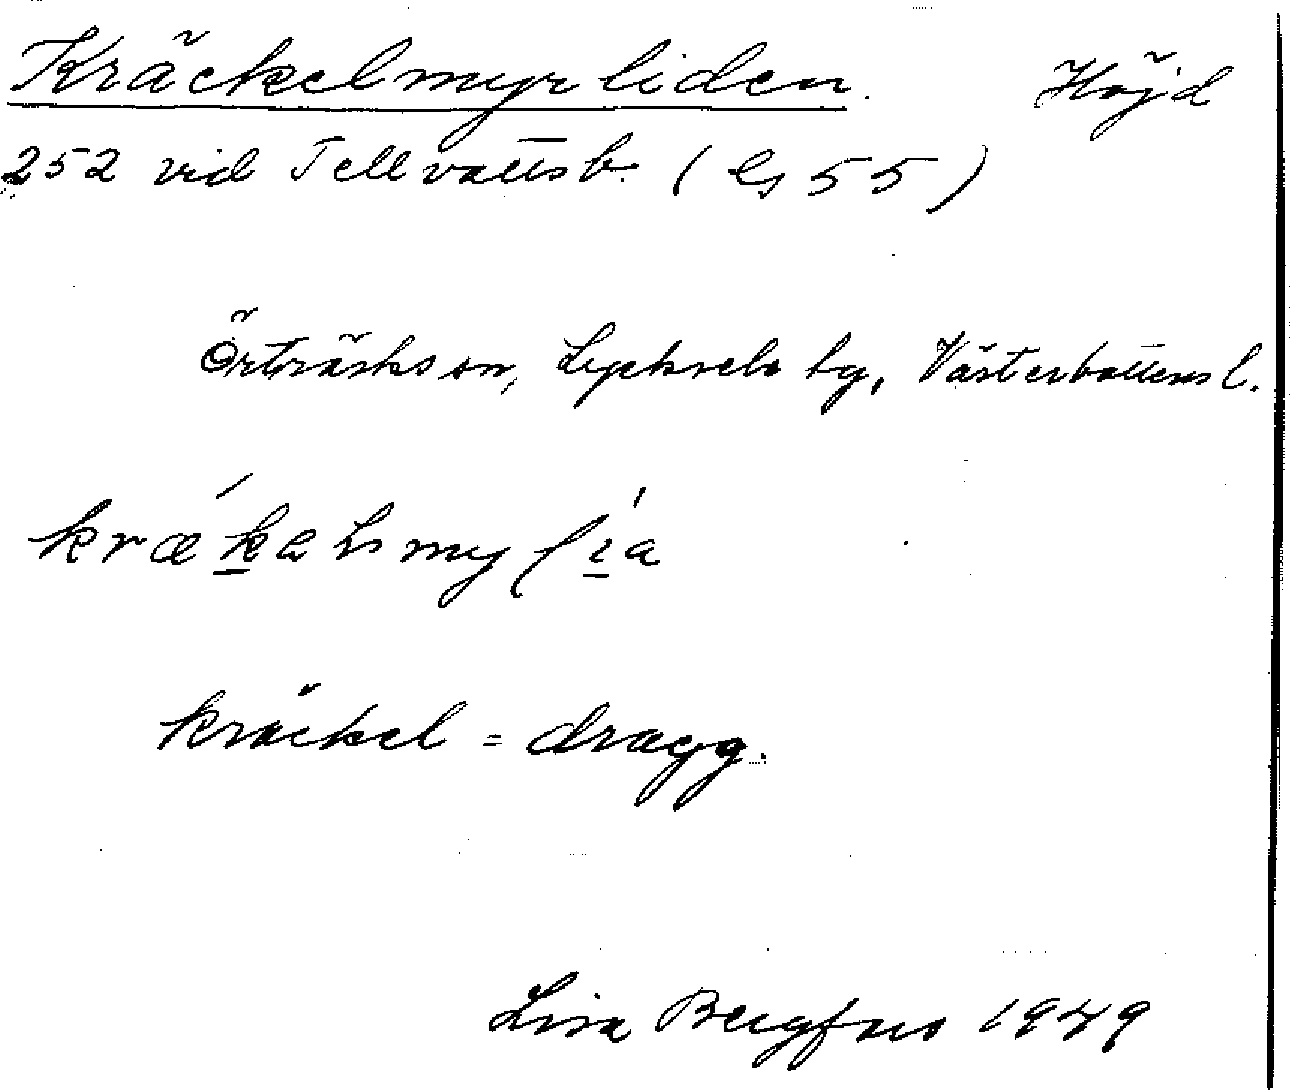 Kräckelmyrliden. Höjd
252 vid Tellvattsb. (Es 55)
Örträsks sn, Lycksele tg, Västerbottens l.
kräckel = dragg.
Lisa Bergfors 1949